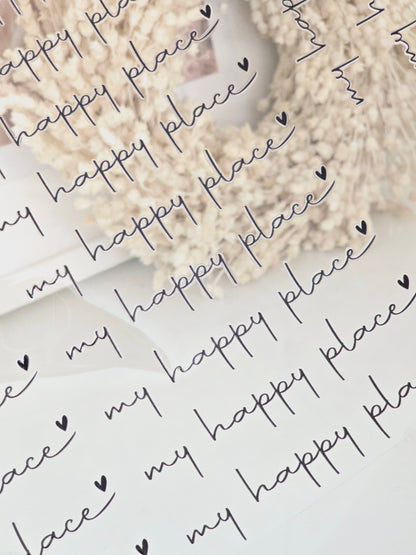 happy place
my happy place
my happy place
my happy place
my happy place
my happy place
my happy pla
ace
place
my happy
my